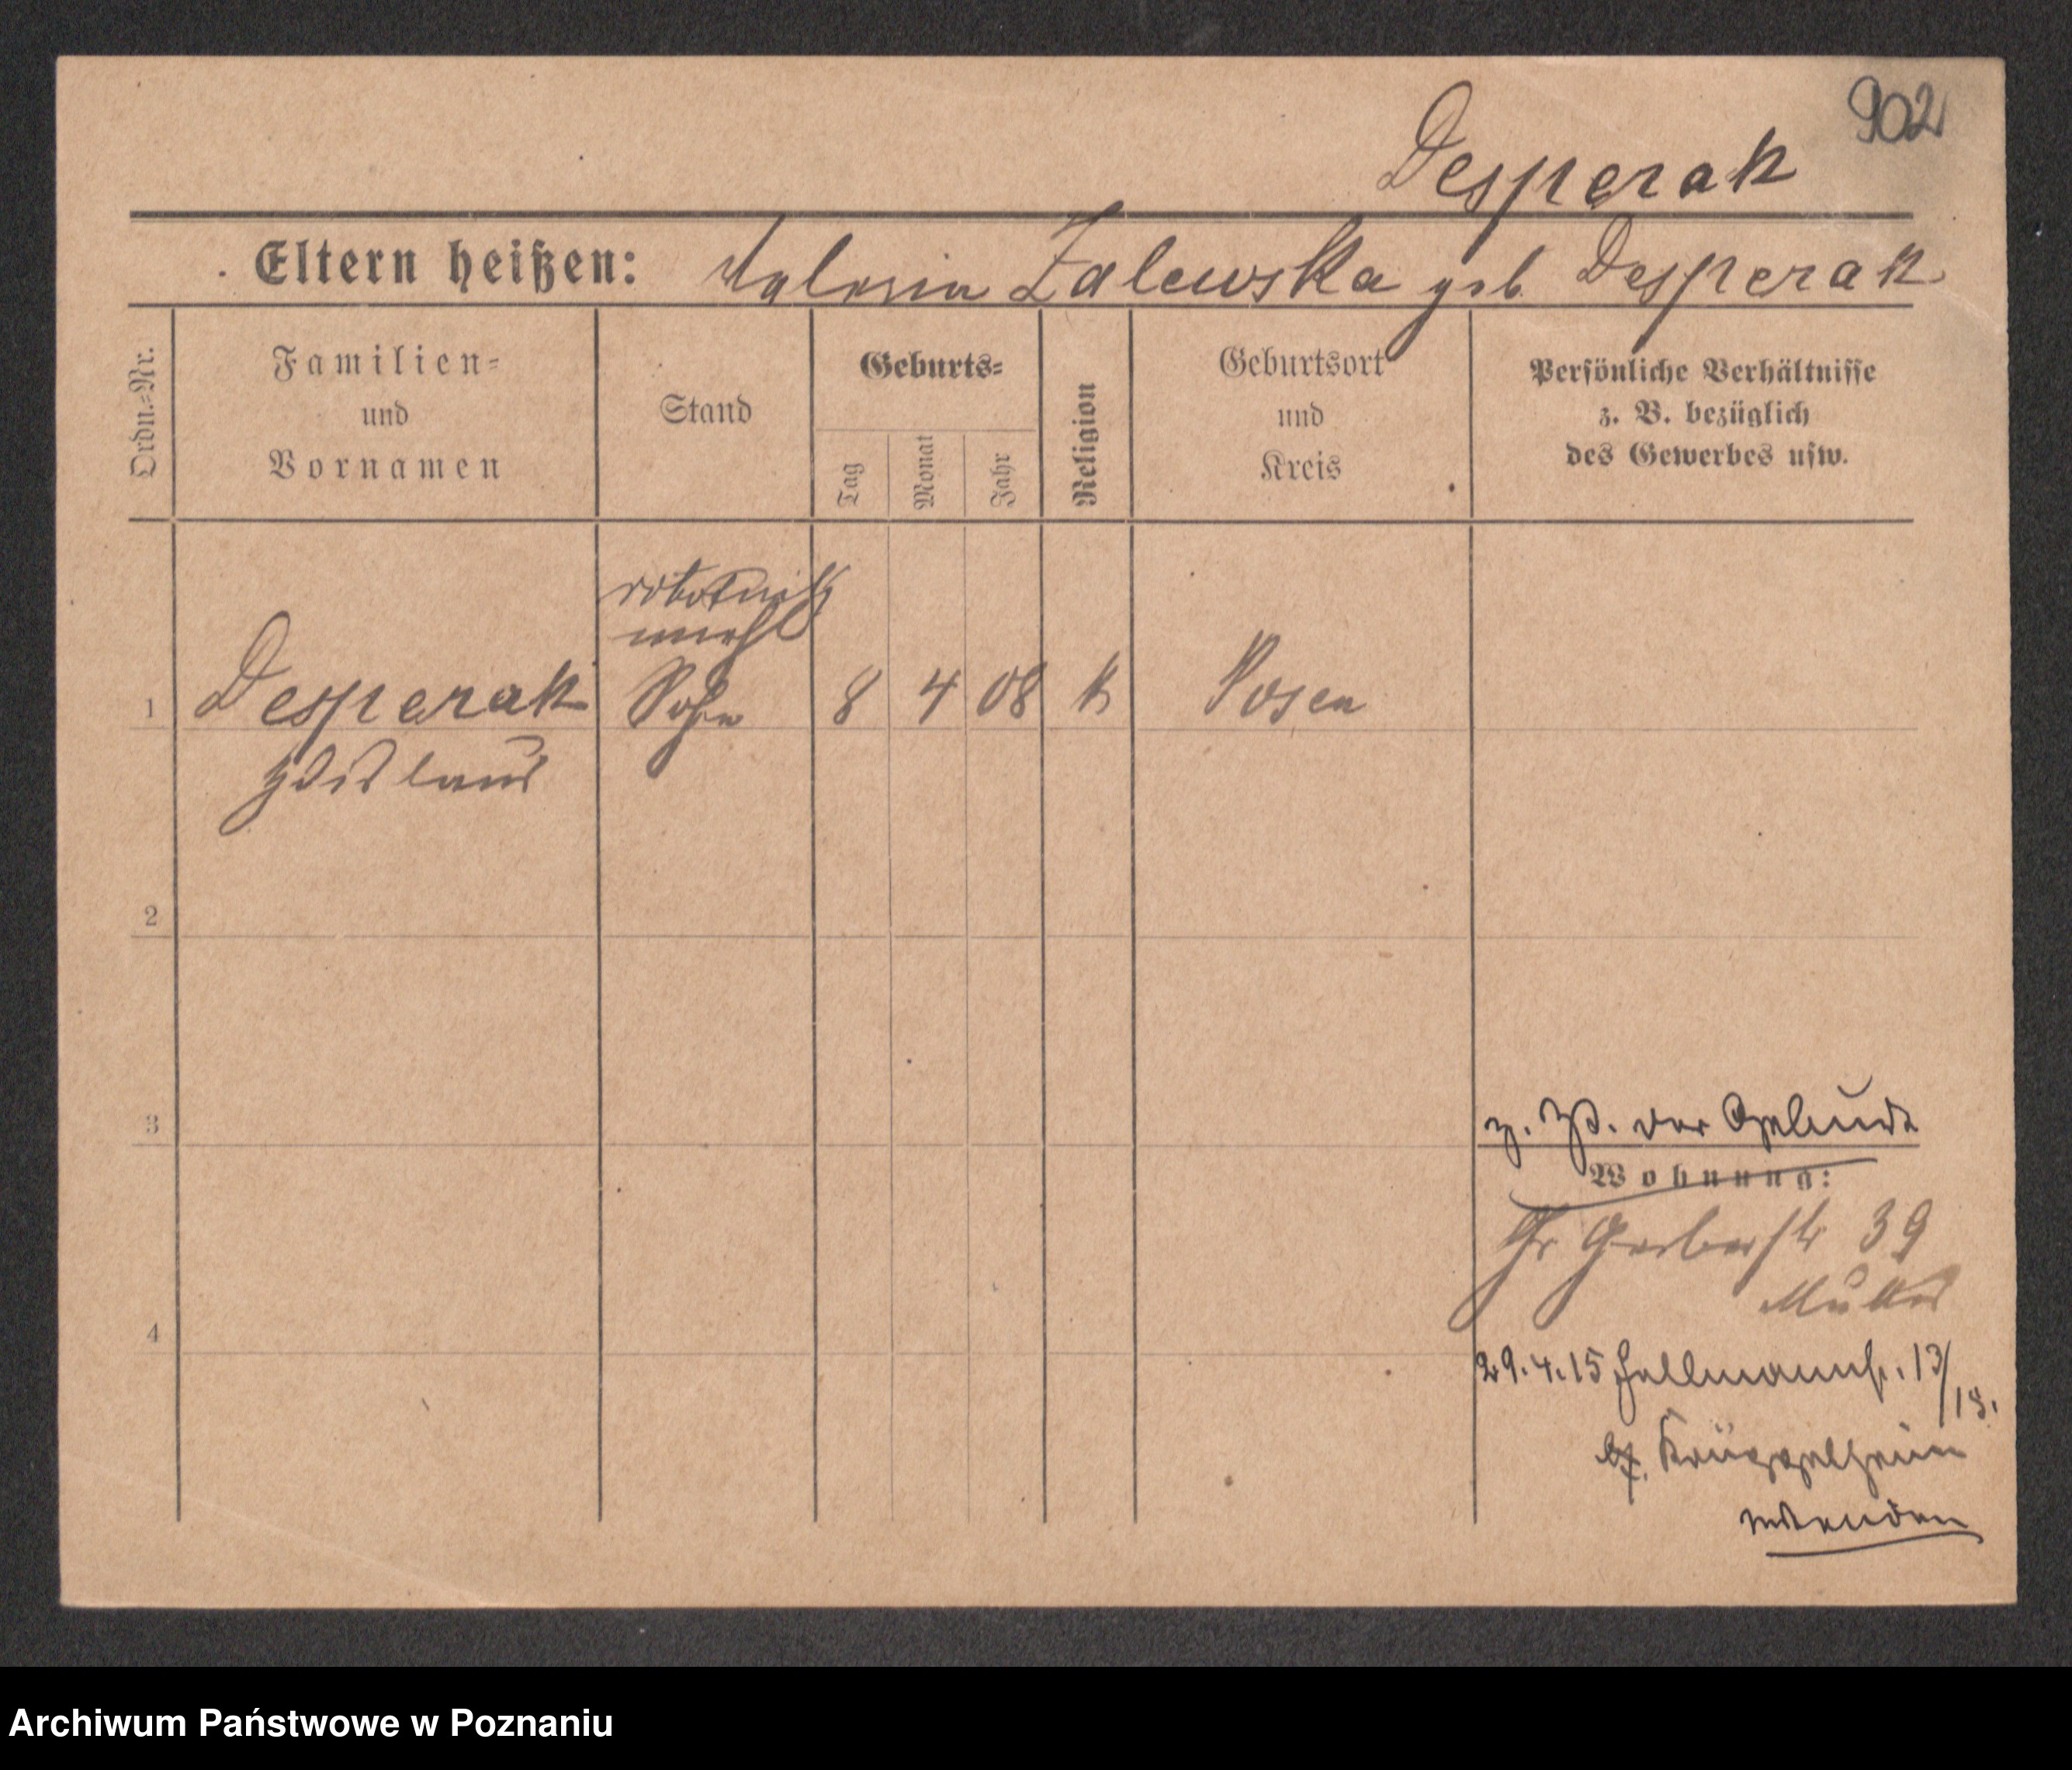 902
Desperak
Eltern heißen: Valeria Zalewska geb. Desperak
Ordn.-Nr.
Familien-
und
Vornamen
Stand
Geburts-
Tag
Monat
Jahr
Religion
Geburtsort
und
Kreis
Persönliche Verhältnisse
z. B. bezüglich
des Gewerbes usw.
robotnik
unehl
1 Desperak Sohn 8 4 08 k Posen
Zdislaus
2
3
z. Zt. der Geburt
Wohnung:
Gr Gerberstr 39
Mutter
4
29.4.15 Hellmannstr. 13/18.
b/. Krüppelheim
wenden
Archiwum Państwowe w Poznaniu